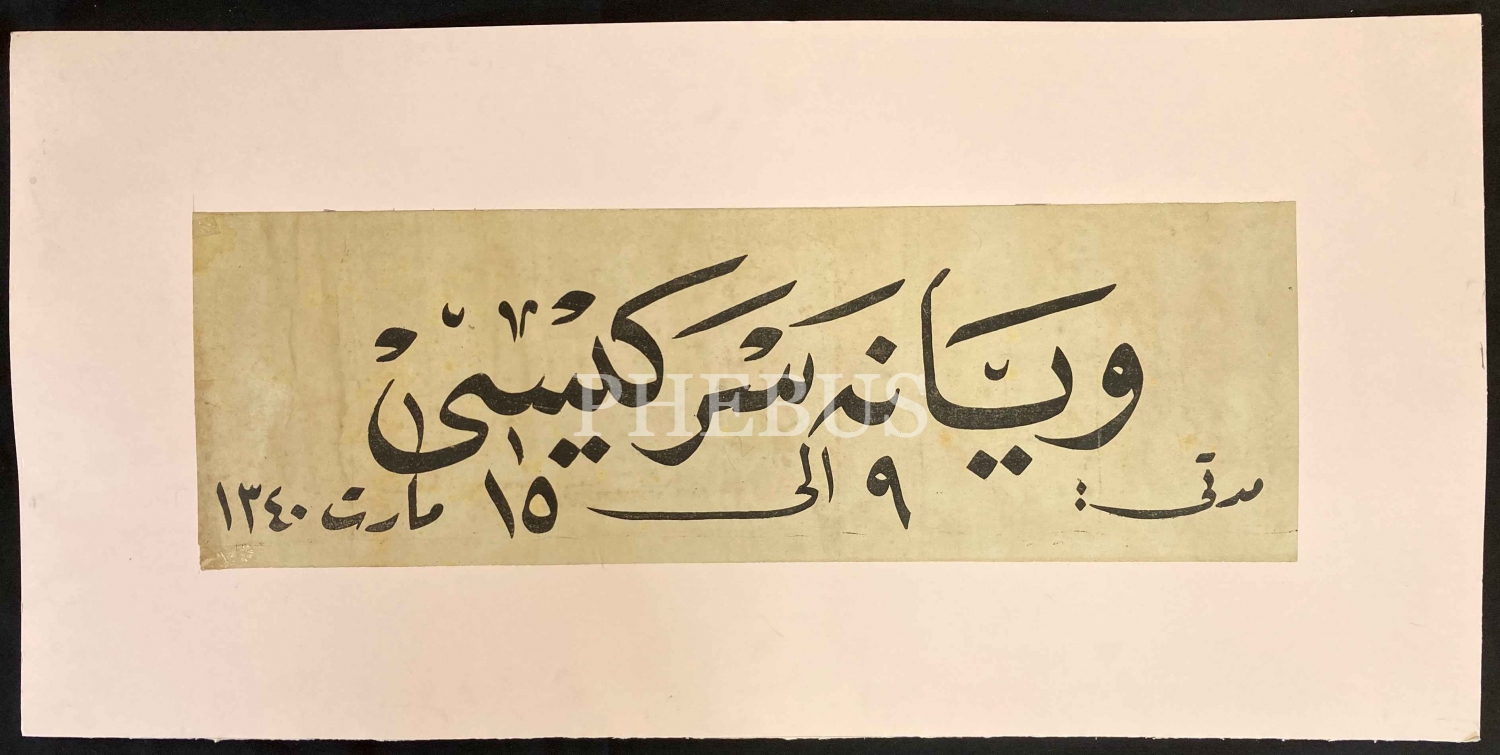 ويانه سركيسى
مدتى : ٩ الى ١٥ مارت ١٣٤٠
PHEBUS